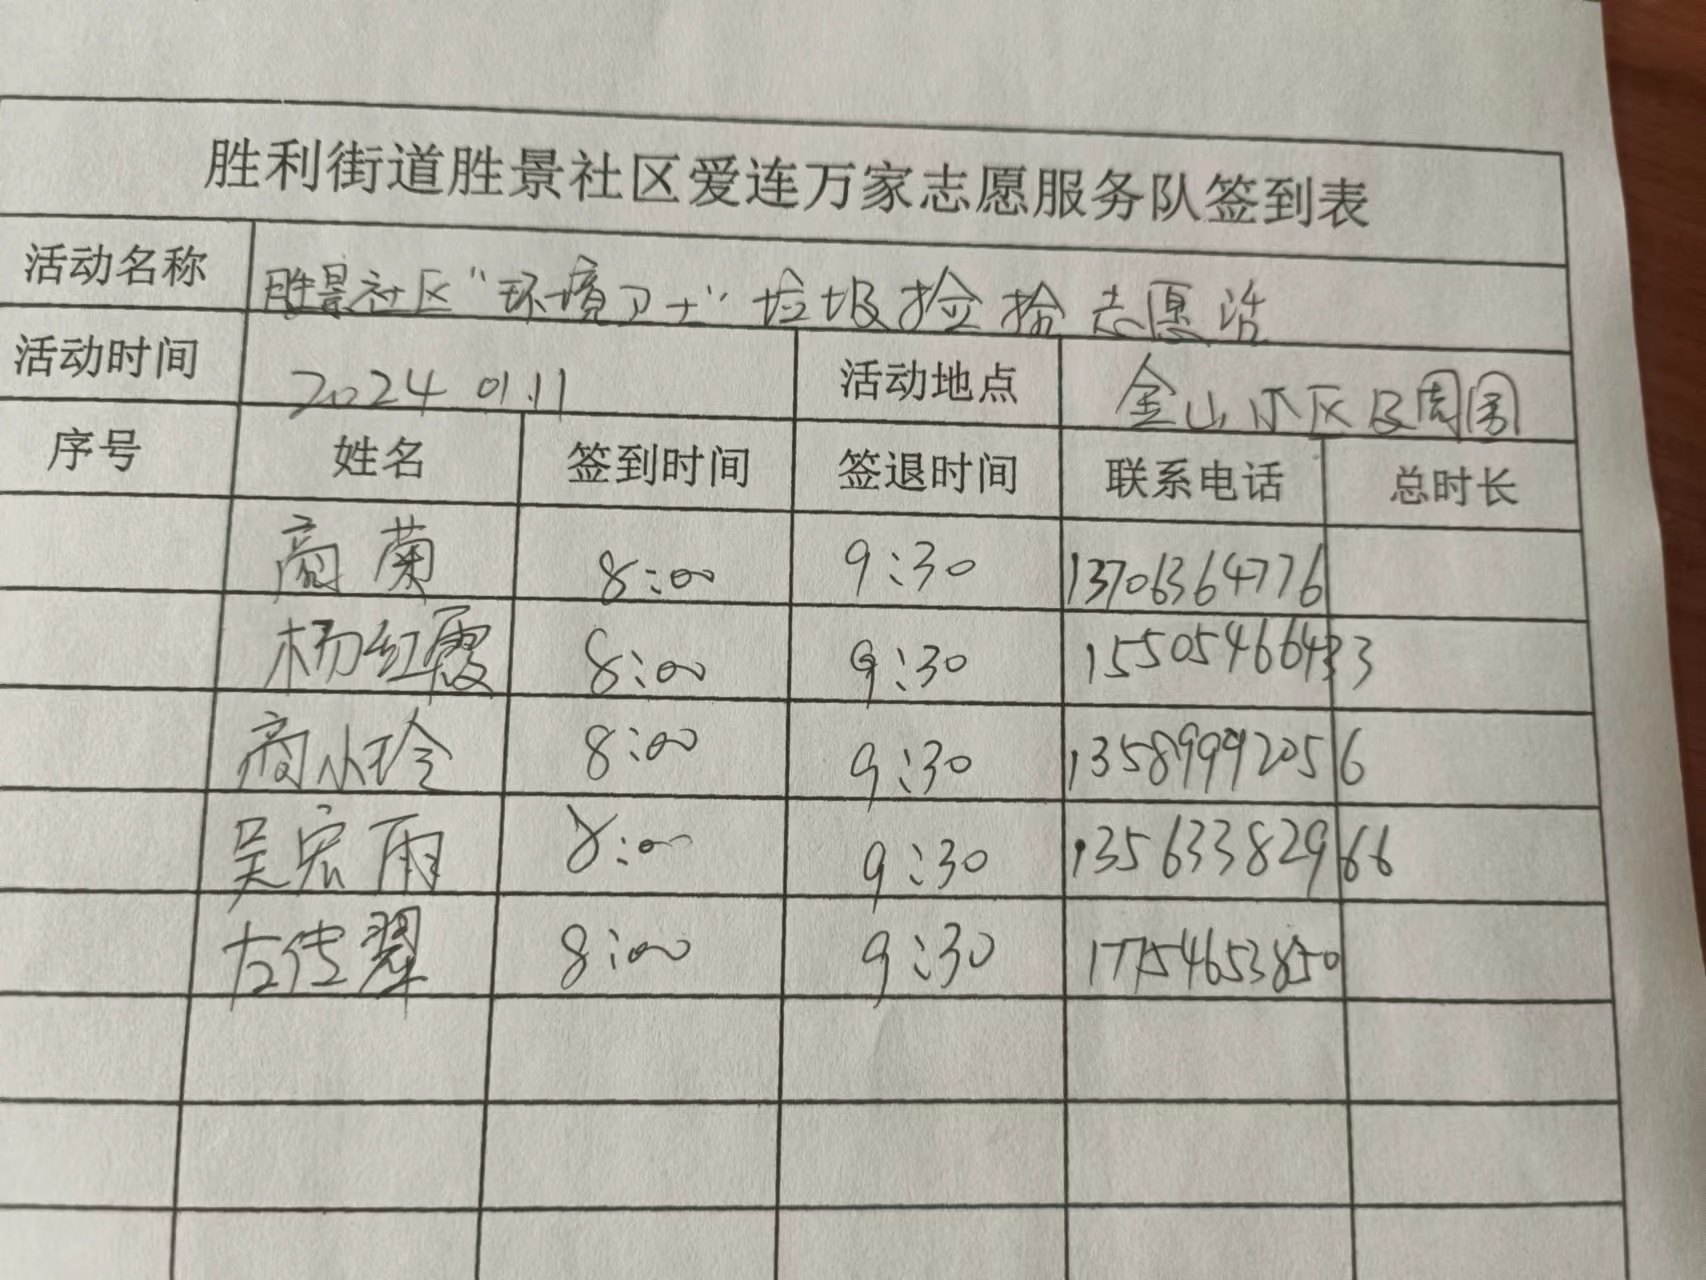 胜利街道胜景社区爱连万家志愿服务队签到表
活动名称 胜景社区"环境卫士"垃圾捡拾志愿活
活动时间 2024.01.11 活动地点 金山小区及周围
序号 姓名 签到时间 签退时间 联系电话 总时长
商菊 8:00 9:30 13706364776
杨红霞 8:00 9:30 15505466433
商小玲 8:00 9:30 13589992056
吴宏雨 8:00 9:30 13563382966
左传翠 8:00 9:30 17754653850